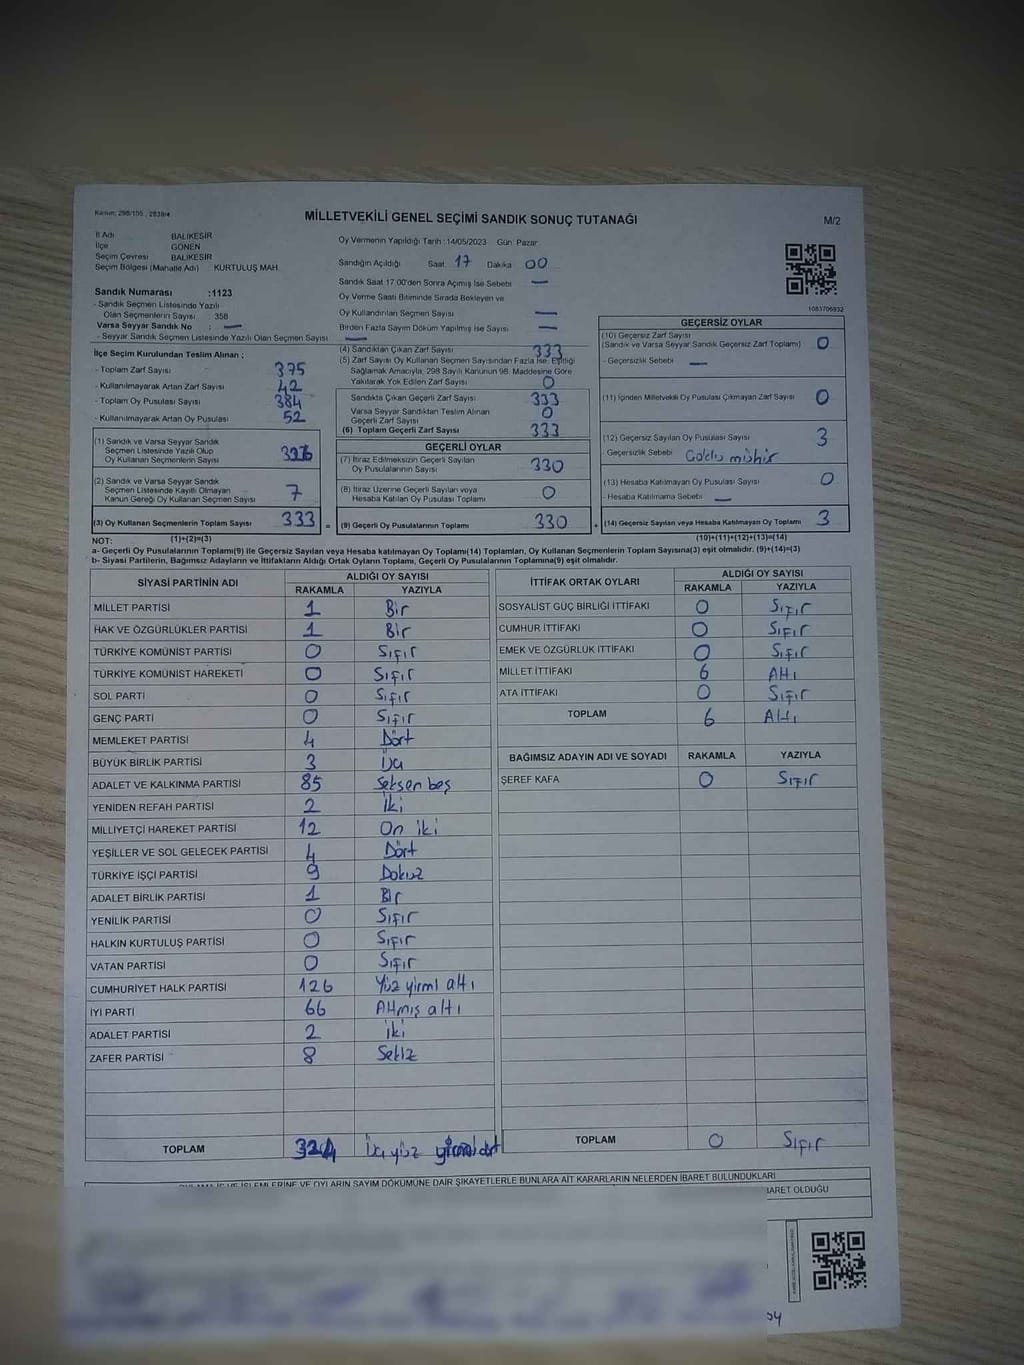 Kanun: 298/105 , 2839/4
MİLLETVEKİLİ GENEL SEÇİMİ SANDIK SONUÇ TUTANAĞI
M/2
İl Adı BALIKESİR
İlçe GÖNEN
Seçim Çevresi BALIKESİR
Seçim Bölgesi (Mahalle Adı) KURTULUŞ MAH.
Sandık Numarası :1123
- Sandık Seçmen Listesinde Yazılı
Olan Seçmenlerin Sayısı : 358
Varsa Seyyar Sandık No : —
- Seyyar Sandık Seçmen Listesinde Yazılı Olan Seçmen Sayısı —
Oy Vermenin Yapıldığı Tarih : 14/05/2023 Gün: Pazar
Sandığın Açıldığı Saat: 17 Dakika 00
Sandık Saat 17.00'den Sonra Açılmış İse Sebebi —
Oy Verme Saati Bitiminde Sırada Bekleyen ve
Oy Kullandırılan Seçmen Sayısı —
Birden Fazla Sayım Döküm Yapılmış İse Sayısı —
1083706932
İlçe Seçim Kurulundan Teslim Alınan ;
- Toplam Zarf Sayısı 375
- Kullanılmayarak Artan Zarf Sayısı 42
- Toplam Oy Pusulası Sayısı 384
- Kullanılmayarak Artan Oy Pusulası 52
(1) Sandık ve Varsa Seyyar Sandık
Seçmen Listesinde Yazılı Olup
Oy Kullanan Seçmenlerin Sayısı 326
(2) Sandık ve Varsa Seyyar Sandık
Seçmen Listesinde Kayıtlı Olmayan
Kanun Gereği Oy Kullanan Seçmen Sayısı 7
(3) Oy Kullanan Seçmenlerin Toplam Sayısı 333 =
(4) Sandıktan Çıkan Zarf Sayısı 333
(5) Zarf Sayısı Oy Kullanan Seçmen Sayısından Fazla İse, Eşitliği
Sağlamak Amacıyla, 298 Sayılı Kanunun 98. Maddesine Göre
Yakılarak Yok Edilen Zarf Sayısı 0
Sandıkta Çıkan Geçerli Zarf Sayısı 333
Varsa Seyyar Sandıktan Teslim Alınan
Geçerli Zarf Sayısı 0
(6) Toplam Geçerli Zarf Sayısı 333
GEÇERLİ OYLAR
(7) İtiraz Edilmeksizin Geçerli Sayılan
Oy Pusulalarının Sayısı 330
(8) İtiraz Üzerine Geçerli Sayılan veya
Hesaba Katılan Oy Pusulası Toplamı 0
(9) Geçerli Oy Pusulalarının Toplamı 330 +
GEÇERSİZ OYLAR
(10) Geçersiz Zarf Sayısı
(Sandık ve Varsa Seyyar Sandık Geçersiz Zarf Toplamı) 0
- Geçersizlik Sebebi —
(11) İçinden Milletvekili Oy Pusulası Çıkmayan Zarf Sayısı 0
(12) Geçersiz Sayılan Oy Pusulası Sayısı 3
Geçersizlik Sebebi
(13) Hesaba Katılmayan Oy Pusulası Sayısı 0
- Hesaba Katılmama Sebebi —
(14) Geçersiz Sayılan veya Hesaba Katılmayan Oy Toplamı 3
NOT: (1)+(2)=(3) (10)+(11)+(12)+(13)=(14)
a- Geçerli Oy Pusulalarının Toplamı(9) ile Geçersiz Sayılan veya Hesaba katılmayan Oy Toplamı(14) Toplamları, Oy Kullanan Seçmenlerin Toplam Sayısına(3) eşit olmalıdır. (9)+(14)=(3)
b- Siyasi Partilerin, Bağımsız Adayların ve İttifakların Aldığı Ortak Oyların Toplamı, Geçerli Oy Pusulalarının Toplamına(9) eşit olmalıdır.
SİYASİ PARTİNİN ADI ALDIĞI OY SAYISI
RAKAMLA YAZIYLA
MİLLET PARTİSİ 1 Bir
HAK VE ÖZGÜRLÜKLER PARTİSİ 1 Bir
TÜRKİYE KOMÜNİST PARTİSİ 0 Sıfır
TÜRKİYE KOMÜNİST HAREKETİ 0 Sıfır
SOL PARTİ 0 Sıfır
GENÇ PARTİ 0 Sıfır
MEMLEKET PARTİSİ 4 Dört
BÜYÜK BİRLİK PARTİSİ 3 Üç
ADALET VE KALKINMA PARTİSİ 85 Seksen beş
YENİDEN REFAH PARTİSİ 2 İki
MİLLİYETÇİ HAREKET PARTİSİ 12 On iki
YEŞİLLER VE SOL GELECEK PARTİSİ 4 Dört
TÜRKİYE İŞÇİ PARTİSİ 9 Dokuz
ADALET BİRLİK PARTİSİ 1 Bir
YENİLİK PARTİSİ 0 Sıfır
HALKIN KURTULUŞ PARTİSİ 0 Sıfır
VATAN PARTİSİ 0 Sıfır
CUMHURİYET HALK PARTİSİ 126 Yüz yirmi altı
İYİ PARTİ 66 Altmış altı
ADALET PARTİSİ 2 iki
ZAFER PARTİSİ 8 Sekiz
TOPLAM 324 Üç yüz yirmi dört
İTTİFAK ORTAK OYLARI ALDIĞI OY SAYISI
RAKAMLA YAZIYLA
SOSYALİST GÜÇ BİRLİĞİ İTTİFAKI 0 Sıfır
CUMHUR İTTİFAKI 0 Sıfır
EMEK VE ÖZGÜRLÜK İTTİFAKI 0 Sıfır
MİLLET İTTİFAKI 6 Altı
ATA İTTİFAKI 0 Sıfır
TOPLAM 6 Altı
BAĞIMSIZ ADAYIN ADI VE SOYADI RAKAMLA YAZIYLA
ŞEREF KAFA 0 Sıfır
TOPLAM 0 Sıfır
İŞLEMLERİNE VE OYLARIN SAYIM DÖKÜMÜNE DAİR ŞİKAYETLERLE BUNLARA AİT KARARLARIN NELERDEN İBARET BULUNDUKLARI
İBARET OLDUĞU